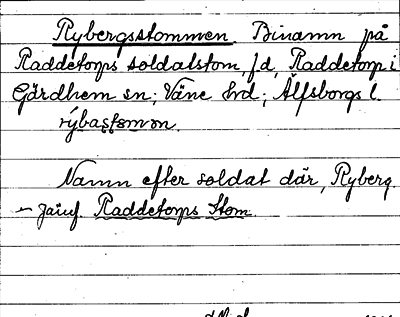 Rybergsstommen Binamn på
Raddetorps soldatstom, f.d. Raddetorp i
Gärdhem sn; Väne hd; Älfsborgs l.
rýbaṣṭomən.
Namn efter soldat där, Ryberg.
— Jämf. Raddetorps Stom.